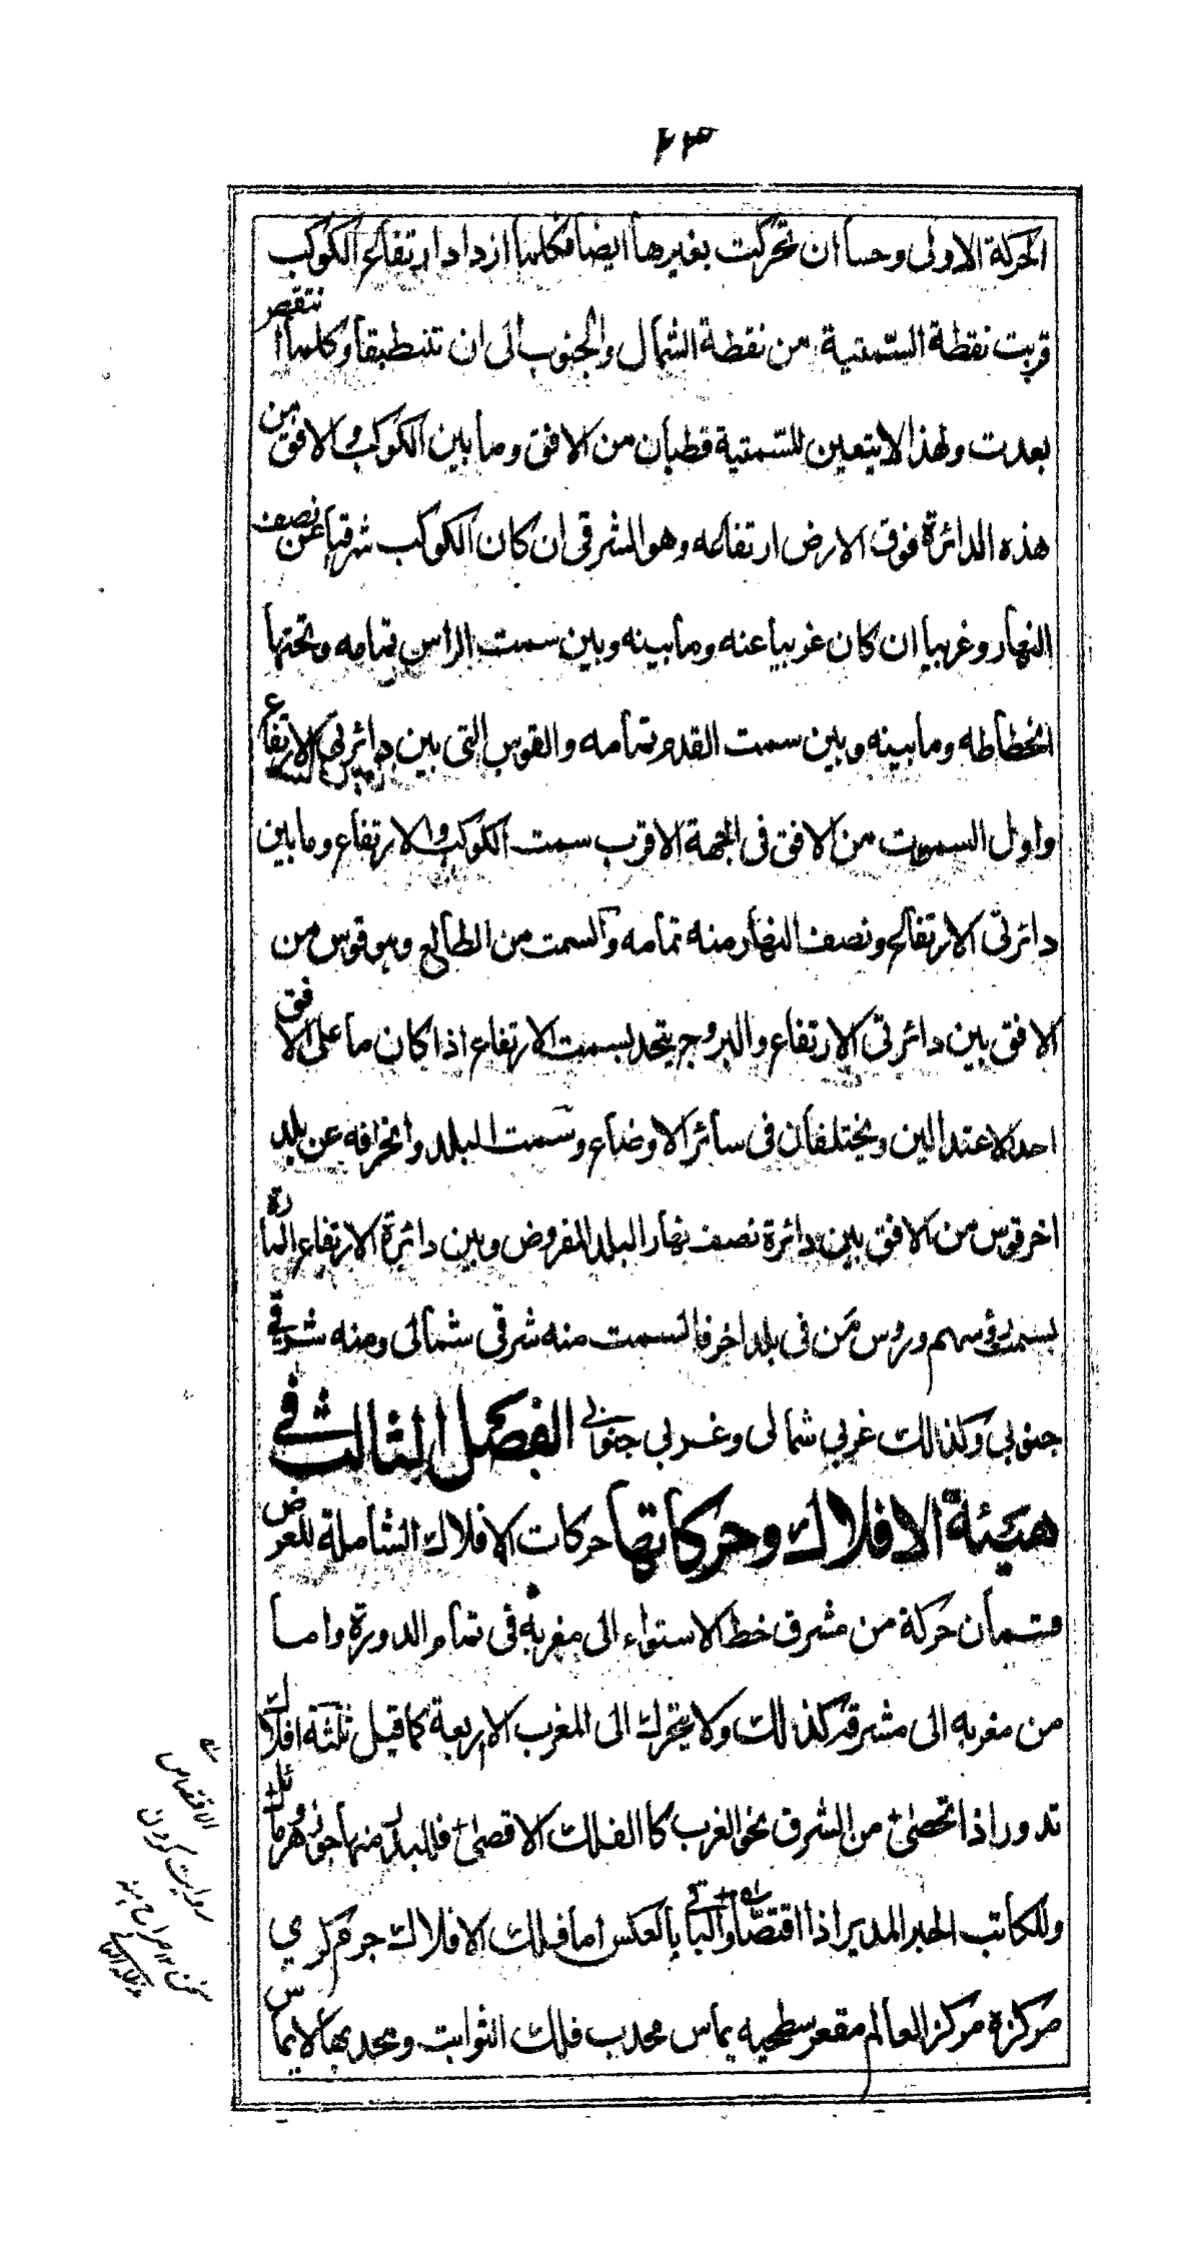 ٢٣
الحركة الاولى وحسا ان تحركت بغيرها ايضا فكلما ازداد ارتفاع الكوكب
قربت نقطة السمتية من نقطة الشمال والجنوب الى ان تنطبقا وكلما انتقص
بعدت ولهذا لا يتعين للسمتية قطبان من الافق وما بين الكوكب والافق من
هذه الدائرة فوق الارض ارتفاعه وهو الشرقى ان كان الكوكب شرقيا عن نصف
النهار وغربيا ان كان غربيا عنه وما بينه وبين سمت الراس تمامه وتحتها
انحطاطه وما بينه وبين سمت القدم تمامه والقوس التى بين دائرتى الارتفاع
واول السموت من الافق فى الجهة الاقرب سمت الكوكب والارتفاع وما بين
دائرتى الارتفاع ونصف النهار منه تمامه والسمت من الطالع وهو قوس من
الافق بين دائرتى الارتفاع والبروج يتحد بسمت الارتفاع اذا كان ما على الافق
احد الاعتدالين ويختلفان فى سائر الاوضاع وسمت البلد وانحرافه عن بلد
اخر قوس من الافق بين دائرة نصف نهار البلد المفروض وبين دائرة الارتفاع المارة
بسمت رؤسهم وروس من فى بلد اخر فالسمت منه شرقى شمالى ومنه شرقي
جنوبي وكذالك غربي شمالى وغربي جنوبي الفصل الثالث في
هيئة الافلاك وحركاتها حركات الافلاك الشاملة للعرض
قسمان حركة من مشرق خط الاستواء الى مغربه فى تمام الدورة واما
من مغربه الى مشرقه كذالك ولا يتحرك الى المغرب الاربعة كما قيل ثلثة افلاك
تدور اذا تحصى من الشرق نحو الغرب كالفلك الاقصى فللبدر منها جوزهر ومائل
وللكاتب الحبر المدير اذا اقتصا والباقي بالعكس اما فلك الافلاك جرم كري
مركزه مركز العالم مقعر سطحيه يماس محدب فلك الثوابت ومحدبها لا يماس